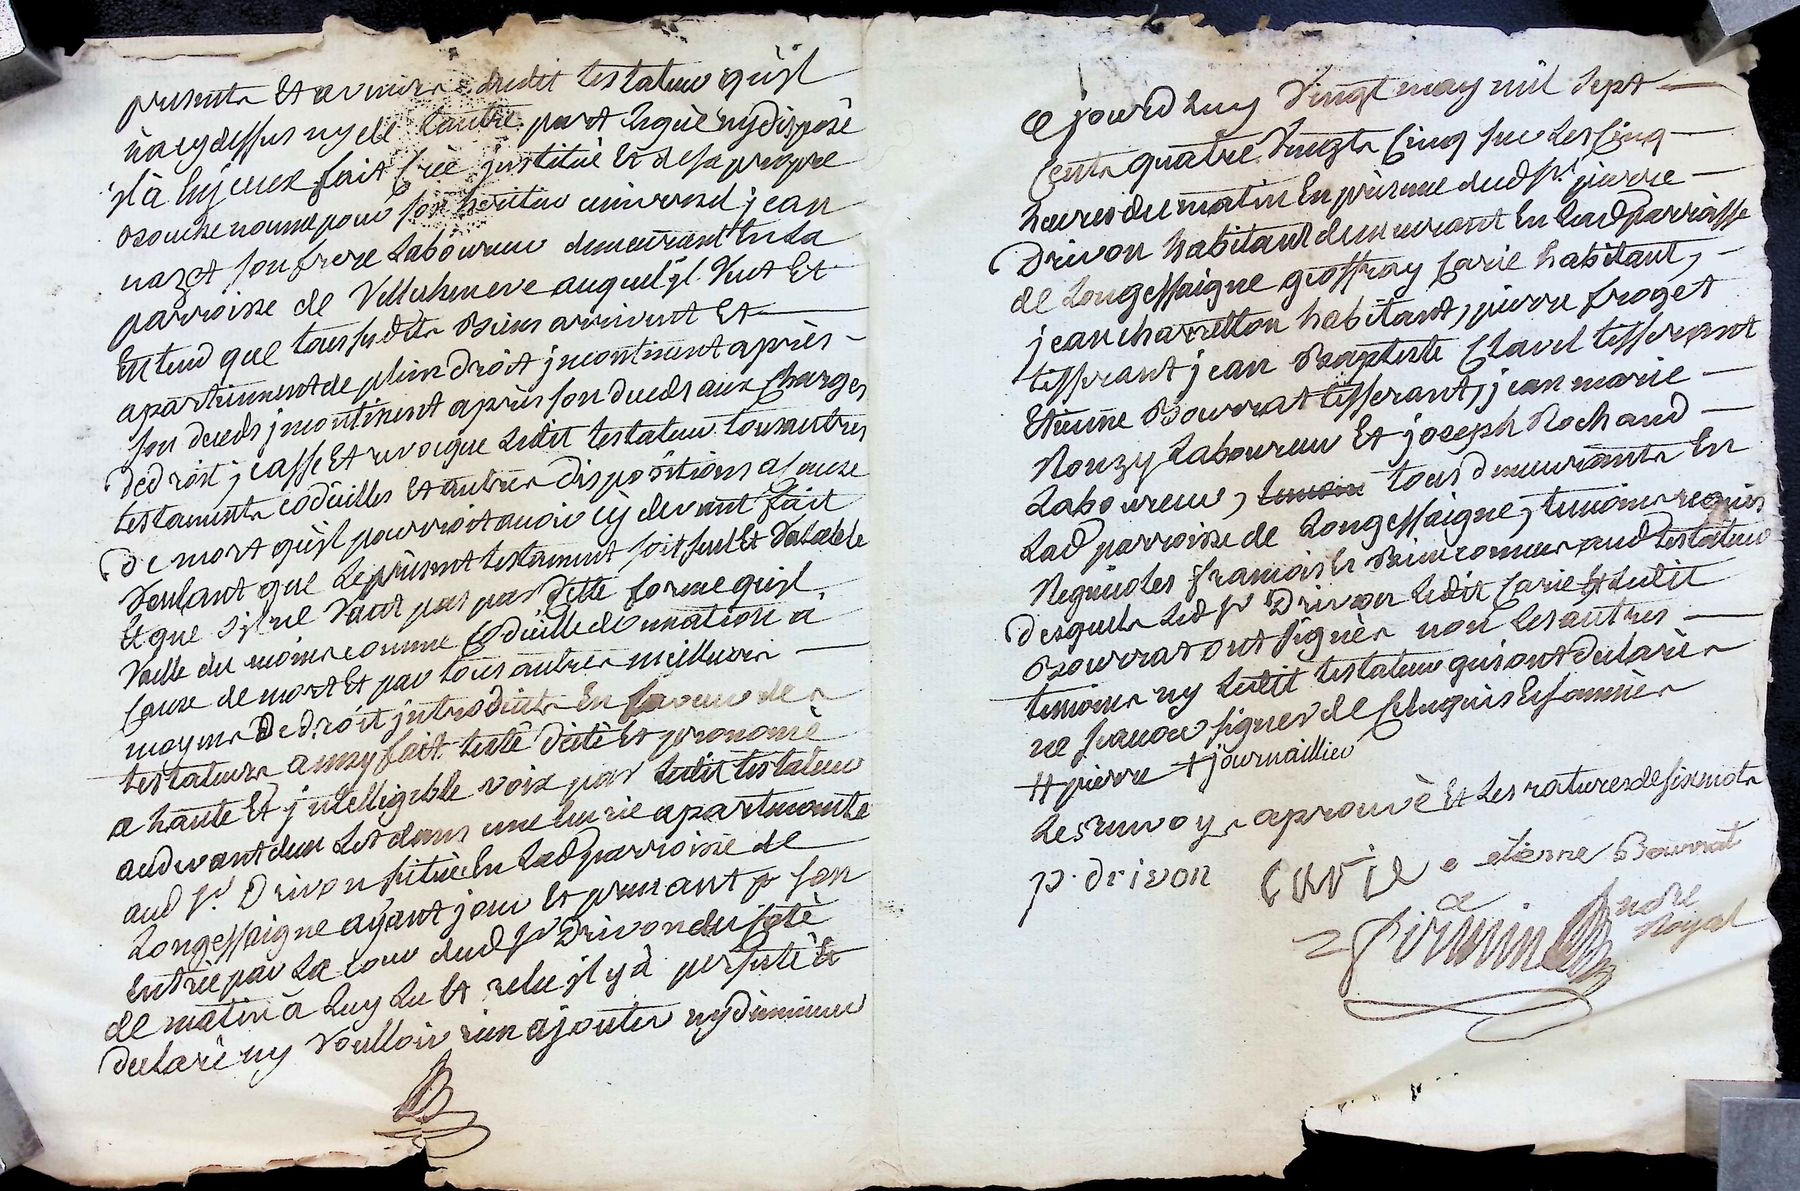 presents et avenirs dudit testateur qu'jl
n'a cy dessus ny de l'autre part leguè ny disposé
jl à luy ceux fait crèe justituè et de sa propre
bouche nomme pour son heritier universel jean
nazet son frere laboureur demeurant en la
parroisse de Villecheneve auquel jl veut et
entend que tous susdits biens arrivent et
apartiennent de plein droit jncontinent après
son deceds jncontinent après son deceds aux charges
de droit, casse et revoque ledit testateur tous autres
testaments codicilles et autres dispositions a cause
de mort qu'jl pourroit avoir cy devant fait
voulant que le présent testament soit seul et valable
et que s'jl ne vaut pas par cette forme qu'jl
vaille du moins comme codicille donnation a
cause de mort et par tous autres meilleurs
moyens de droit jntroduits en faveur des
testateurs ainsy fait testé dictè et prononcè
a haute et jntelligible voix par ledit testateur
audevant d'un lit dans une apartenante
aud sr. Drivon situèe en lad parroisse de
Longessaigne ayant jour et prenant son
entrèe par la cour dud sr Drivon du cotè
de matin à luy lu et relu jl y à persistè et
declarè ny voulloir rien ajouter ny diminuer
ce jourd'huy vingt may mil sept
cents quatre vingts cinq sur les cinq
heures du matin en présence dud sr. pierre
Drivon habitant demeurant en lad parroisse
de Longessaigne geoffray carie habitant,
jean charretton habitant, pierre froget
tisserant jean Baptiste Clavel tisserant
Etienne Bourrat tisserant, jean marie
Rouzy laboureur et joseph Rochand
laboureur, tous demeurants en
lad parroisse de Longessaigne, temoins requis
Regnicoles francois et bien connus aud testateur
desquels led sr Drivon ledit carie et ledit
Bourrat ont signès non les autres
temoins ny ledit testateur qui ont declarès
ne scavoir signer de ce enquis et sommès
# pierre + journaillier
Les renvoys aprouvè et les ratures de six mots
p. drivon carie etienne Bourrat
Firmin
nore
Royal